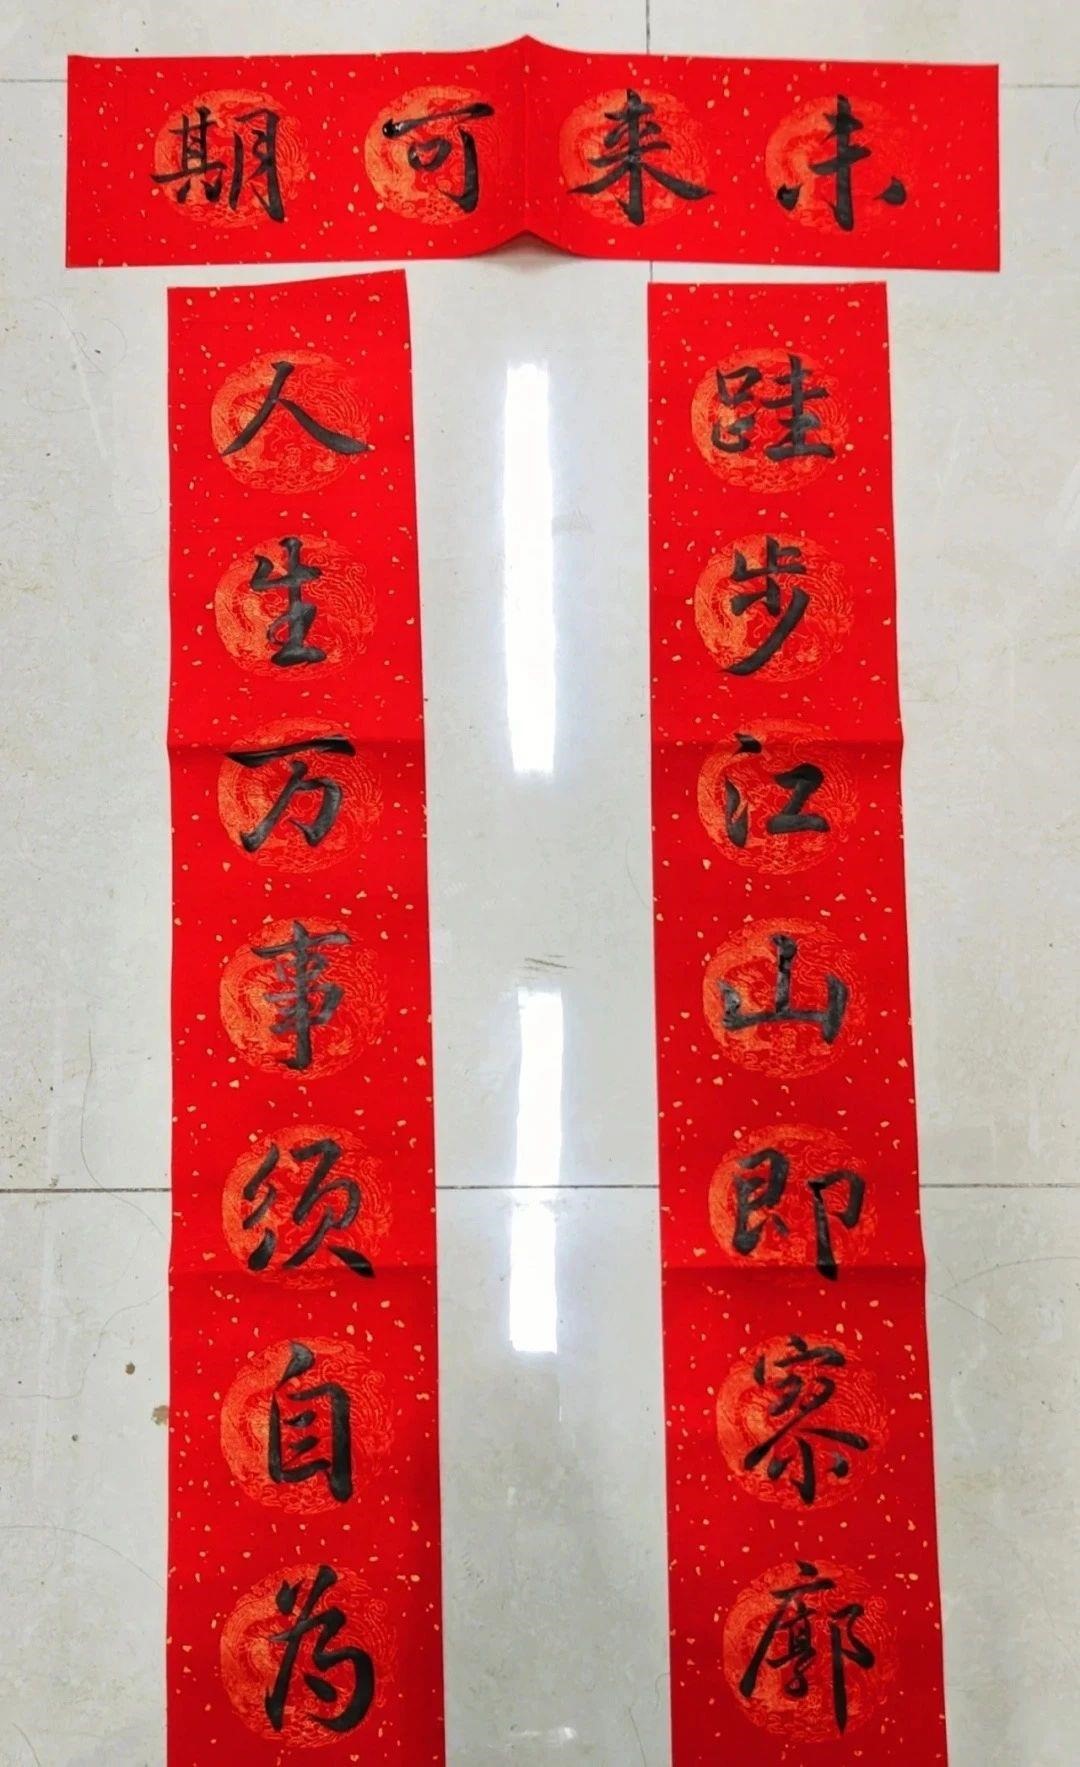 未来可期
跬步江山即寥廓
人生万事须自为